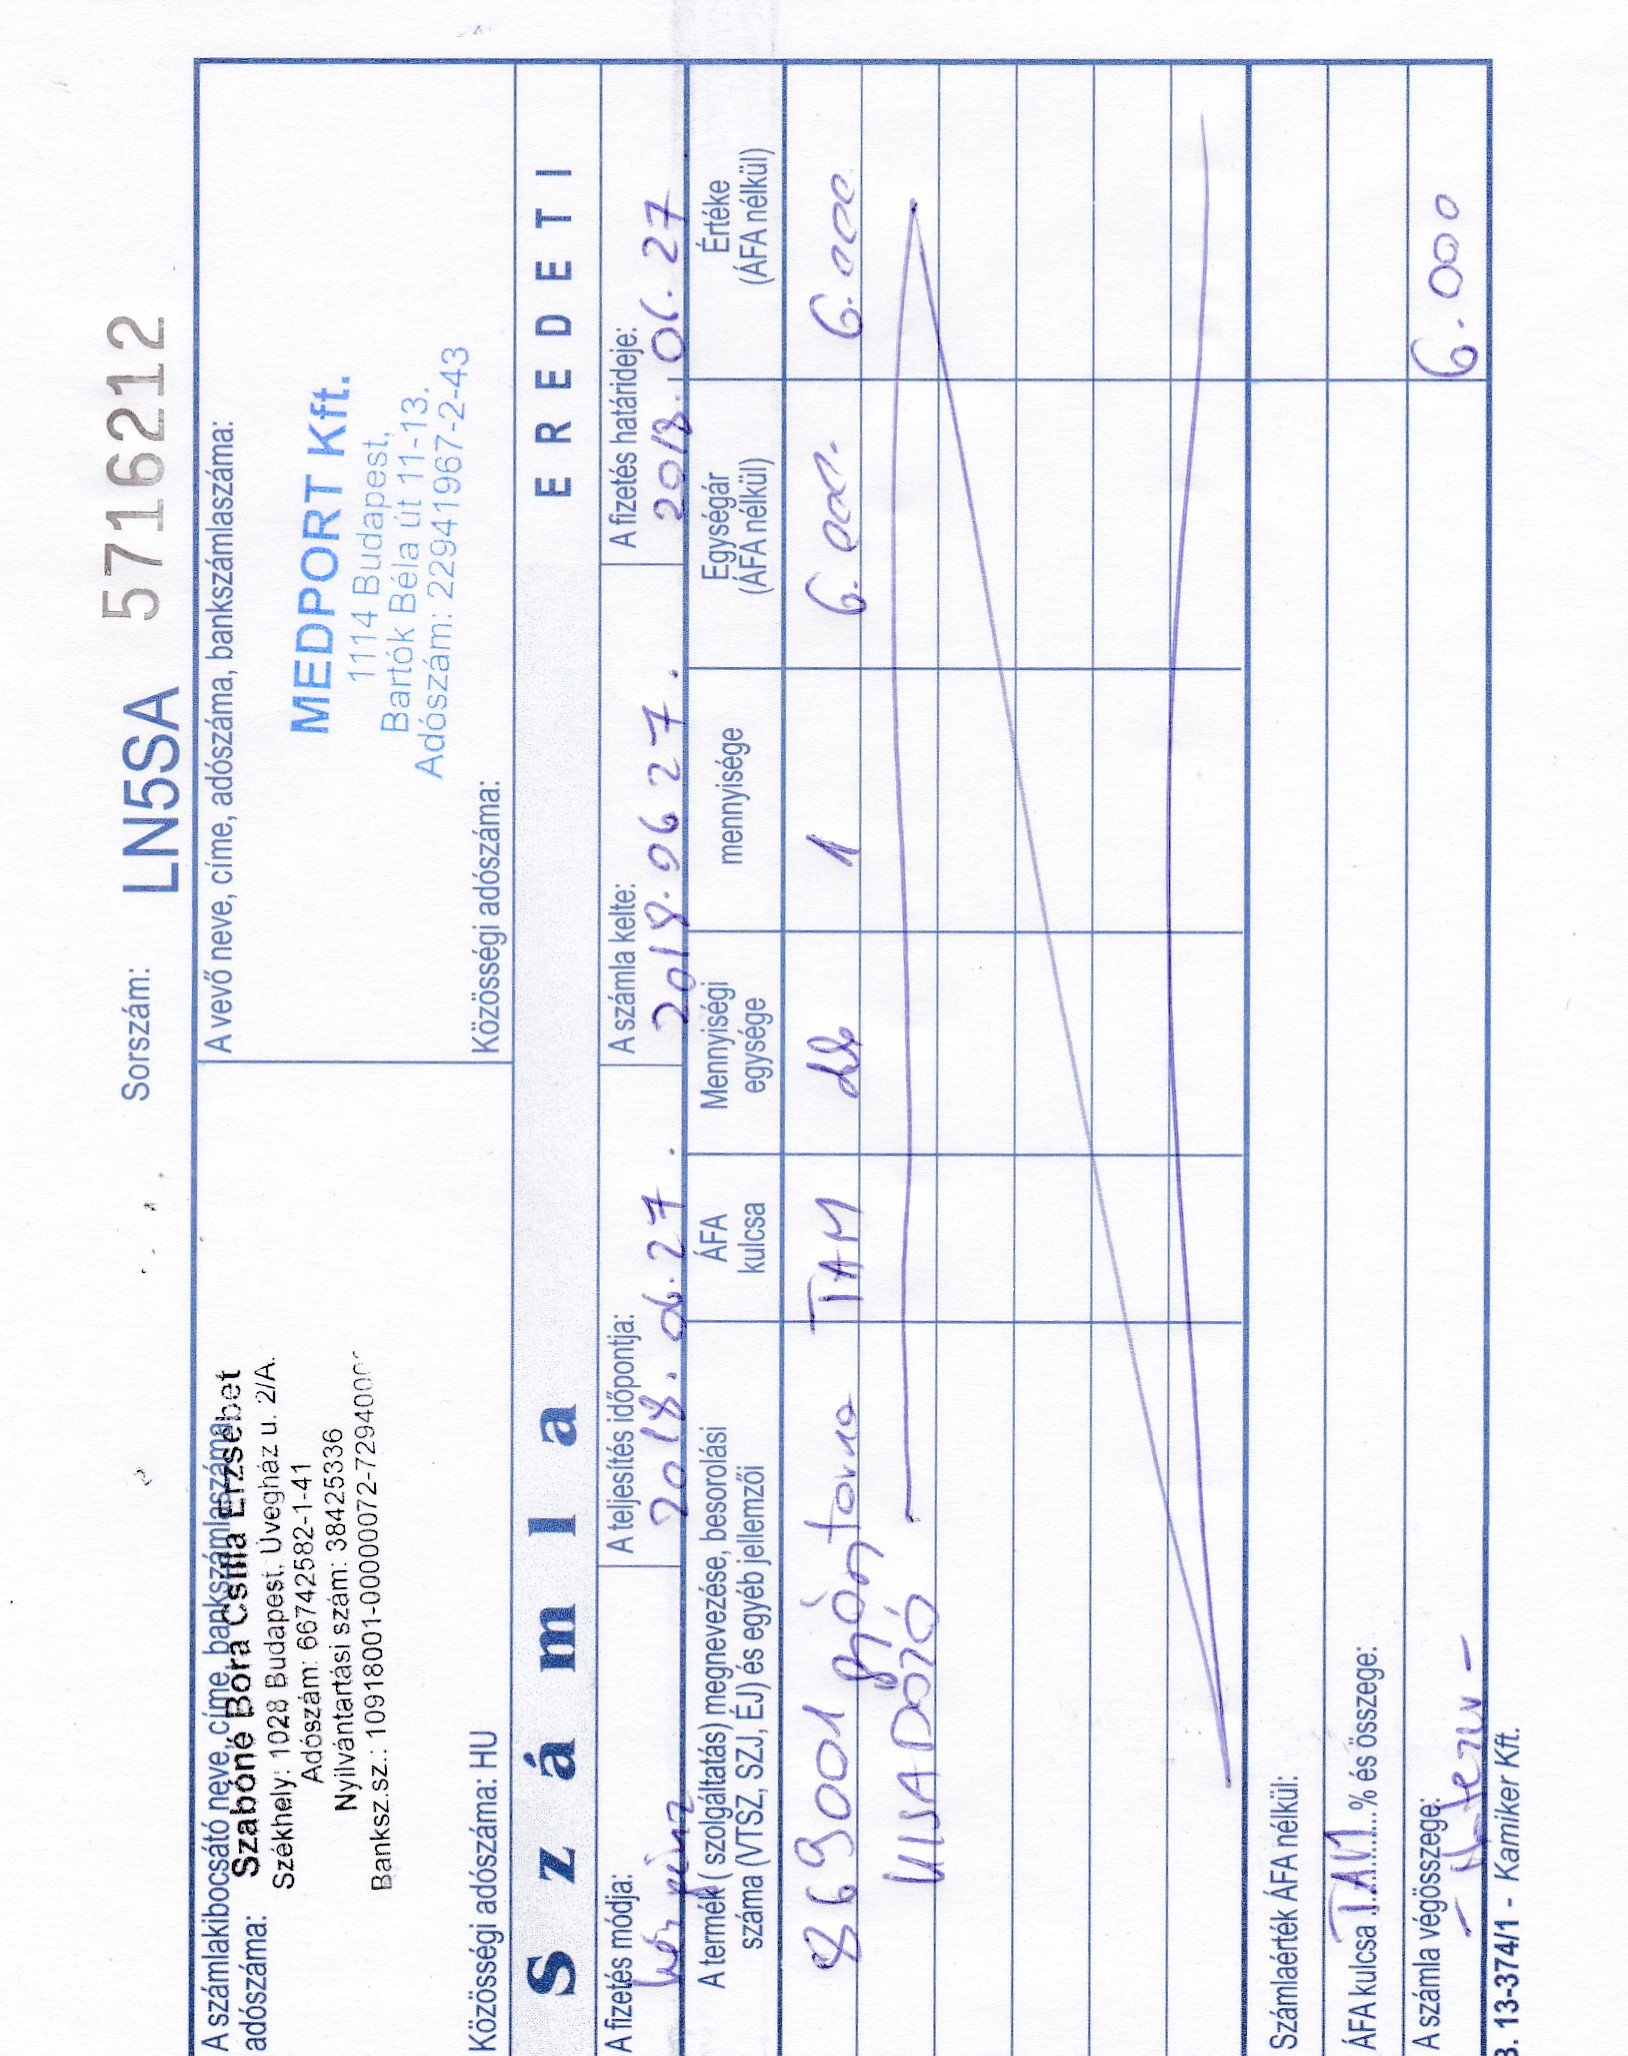 Sorszám: LN5SA 5716212
A számlakibocsátó neve, címe, bankszámlaszáma,
adószáma:
Szabóné Bora Csilla Erzsébet
Székhely: 1028 Budapest, Üvegház u. 2/A.
Adószám: 66742582-1-41
Nyilvántartási szám: 38425336
Banksz.sz.: 10918001-00000072-7294000
Közösségi adószáma: HU
A vevő neve, címe, adószáma, bankszámlaszáma:
MEDPORT Kft.
1114 Budapest,
Bartók Béla út 11-13.
Adószám: 22941967-2-43
Közösségi adószáma:
Számla
EREDETI
A fizetés módja:
A teljesítés időpontja:
2018. 06. 27.
A számla kelte:
2018. 06 27.
A fizetés határideje:
2018. 06. 27
A termék ( szolgáltatás) megnevezése, besorolási
száma (VTSZ, SZJ, ÉJ) és egyéb jellemzői
ÁFA
kulcsa
Mennyiségi
egysége
mennyisége
Egységár
(ÁFA nélkül)
Értéke
(ÁFA nélkül)
869001 gyón torna TAM db 1 6.000. 6.000
KISADÓZÓ
Számlaérték ÁFA nélkül:
ÁFA kulcsa TAM % és összege:
A számla végösszege: 6.000
B. 13-374/1 - Kamiker Kft.